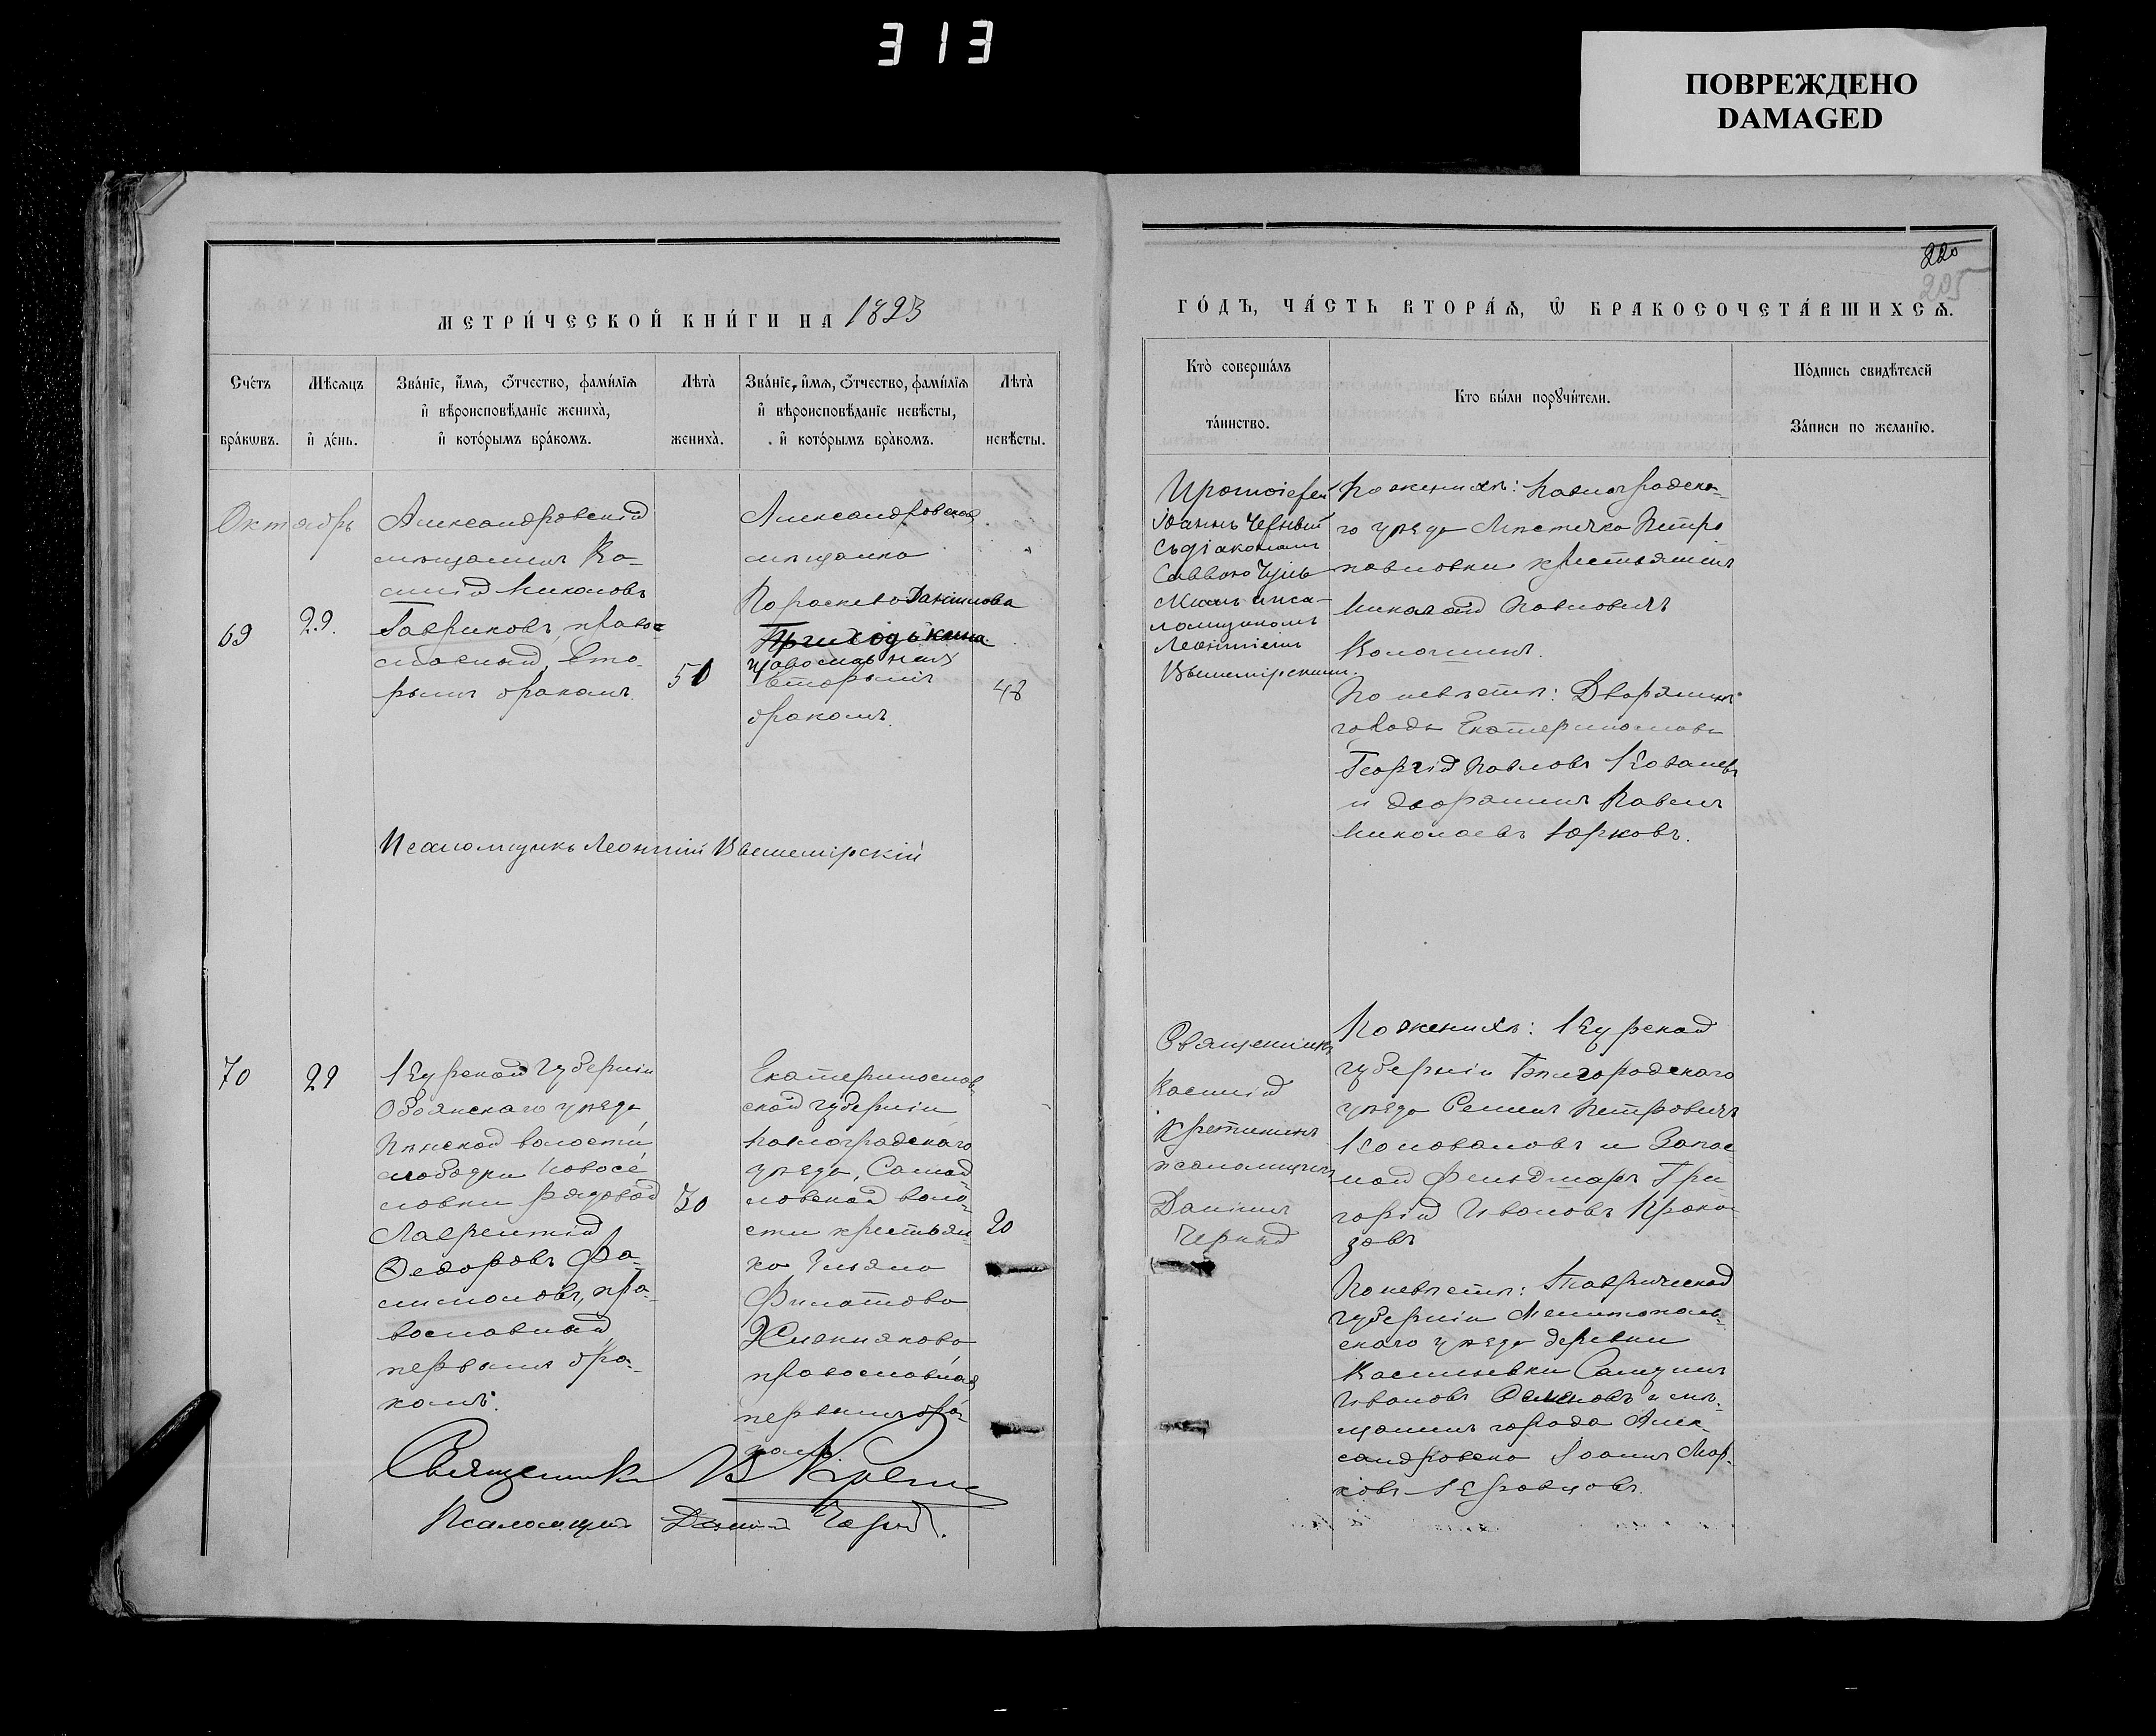 313
ПОВРЕЖДЕНО
DAMAGED
220
205
МЕТРИ́ЧЕСКОЙ КНИ́ГИ НА 1893
ГО́ДЪ, ЧА́СТЬ ВТОРА́Ѧ, Ѿ БРАКОСОЧЕТА́ВШИХСѦ.
Сче́тъ бра́кѡвъ.
Мѣ́сѧцъ и҆ де́нь.
Зва́нїе, и҆́мѧ, ѻ҆́тчество, фами́лїѧ
и҆ вѣроисповѣ́данїе жениха̀,
и҆ кото́рымъ бра́комъ.
Лѣ́та жениха̀.
Зва́нїе, и҆́мѧ, ѻ҆́тчество, фами́лїѧ
и҆ вѣроисповѣ́данїе невѣ́сты,
и҆ кото́рымъ бра́комъ.
Лѣ́та невѣ́сты.
Кто̀ соверша́лъ та́инство.
Кто бы́ли порꙋчи́тели.
По́дпись свидѣ́телей
За́писи по жела́нїю.
Октябрь
69
29.
Александровскій
мѣщанинъ Ва-
силій Николаевъ
Гавриковъ, право-
славный, вто-
рымъ бракомъ.
51
Александровская
мѣщанка
Параскева Даніилова
Приходькина
православная
вторымъ
бракомъ.
48
Протоіерей
Іоаннъ Черный
съ діакономъ
Саввою
псa-
ломщикомъ
Леонтіемъ
Вышемірскимъ.
По женихѣ: Павлоградска-
го уѣзда Мѣстечка Петро
павловки крестьянинъ
Николай Павловичъ
Калашник.
По невѣстѣ: Дворянинъ
города Екатеринослава
Георгій Павловъ Ковалевъ
и дворянинъ Павелъ
Николаевъ Юрковъ.
Псаломщикъ Леонтій Вышемірскій
70
29
Курской губерніи
Обоянскаго уѣзда
Пѣнской волости
слободки Новосе
ловки рядовой
Лаврентій
Ѳедоровъ Фа-
лимоновъ, пра-
вославный
первымъ бра-
комъ.
30
Екатеринослав-
ской губерніи
Павлоградскаго
уѣзда,
ловской воло-
сти крестьян-
ка Ульяна
Филатова
православная
первымъ бра-
комъ.
20
Священникъ
Василій
псаломщикъ
Даніилъ
Черный
По женихѣ: Курской
губерніи Бѣлгородскаго
уѣзда Семенъ Петровичъ
Коноваловъ и Запас-
ной Фельдшеръ Гри
горій Ивановъ Прока-
зовъ
По невѣстѣ: Таврической
губерніи Мелитополь-
скаго уѣзда деревни
Васильевки Самуилъ
Ивановъ Семеновъ и мѣ-
щанинъ города Алек-
сандровска Іоаннъ Мар-
ковъ Кравцовъ.
Священникъ В
Псаломщикъ Даніилъ Черный.